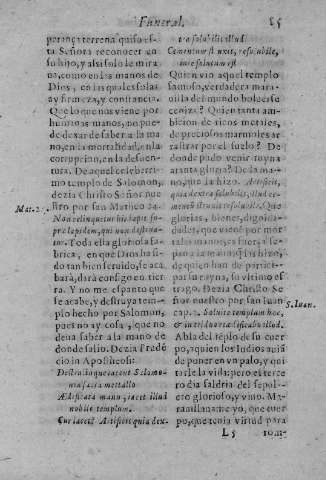 Funeral. 85
perança terrena quiso es-
ta Señora reconocer en
su hijo, y alsi solo le mira
ua, como en las manos de
Dios, en las quales solas
ay firmeza, y confiança.
Que lo que nos viene por
humanas manos, no pue-
de dexar de saber a la ma
no, en la mortalidad, en la
corrupcion, en la desuen-
tura. De aquel celeberri-
mo templo de Salomon,
dezia Christo Señor nue
stro por san Matheo 24.
Mat. 2.
Non relinquetur hic lapis su-
pra lapidem, qui non destrua-
tur. Toda ella gloriosa fa-
brica, en que Dios ha si-
do tan bien seruido, se aca
bará, dará consigo en tier
ra. Y no me espanto que
se acabe, y destruya tem-
plo hecho por Salomon,
pues no ay cosa, que no
deua saber a la mano de
donde salio. Dezia Prudē
cio in Apostheosi:
Destructaque iacent Salomo-
nia saxa metallo
Ædificata manu, iacet illud
nobile templum.
Cur iacet? Artificis quia dex-
tra solubilis illud
Cæmentum st uxit, resolubile,
iure solutum est
Quien vio aquel templo
famoso, verdadera mara-
uilla del mundo buelto en
ceniza? Quien tanta am-
bicion de ricos metales,
de preciosos marmoles ar
rastrar por el suelo? De
donde pudo venir ruyna
a tanta gloria? De la ma-
no, que la hizo. Artificis,
quia dextra solubilis, illud cæ-
mentum struxit resolubile. Que
glorias, bienes, dignida-
dades, que viene por mor
tales manos, es fuerça se-
pan a la mano que las hizo,
aunque han de partici-
par la ruyna, su vltimo es
trago. Dezia Christo Se
ñor nuestro por san Iuan
S. Iuan.
cap. 2. Soluite templum hoc,
& in triduo reædificabo illud.
Abla del tēplo de su cuer
po, quien los Iudios auiā
de poner en vn palo, y qui
tarle la vida: pero el terce
ro dia saldria del sepul-
cro glorioso, y viuo. Ma-
rauillaname yo, que cuer
po, que tenia virtud para
L 5 tom-